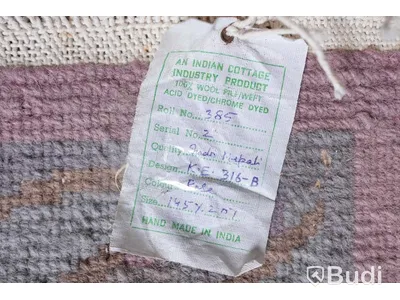 AN INDIAN COTTAGE
INDUSTRY PRODUCT
100% WOOL PILE/WEFT
ACID DYED/CHROME DYED
Roll No. 385
Serial No. 2
Quality Indo Nepali
Design K.E. 316-B
Colour
Size
HAND MADE IN INDIA
Budi